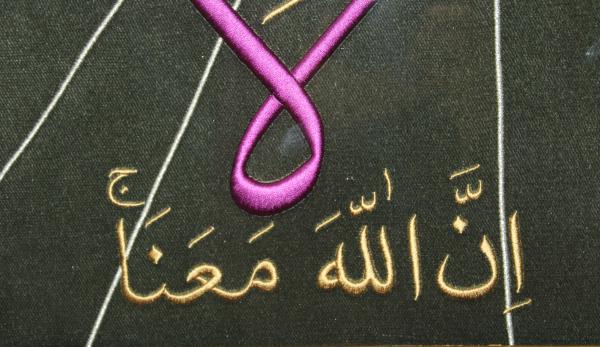 لا
إِنَّ اللّٰهَ مَعَنَا ۚ